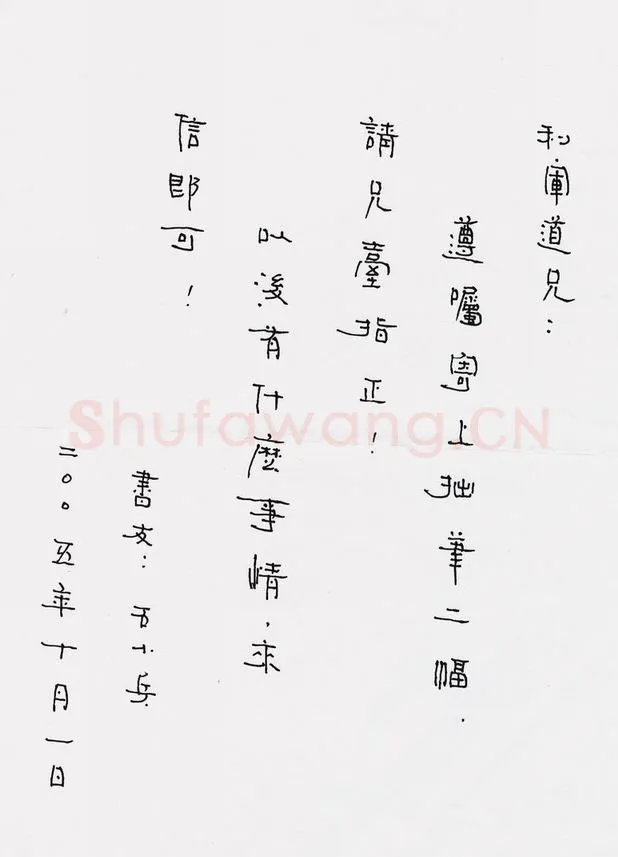 利軍道兄：
遵囑寄上拙筆二幅.
請兄臺指正！
以後有什麼事情，來
信即可！
書友：万小兵
二〇〇五年十月一日
Shufawang.CN